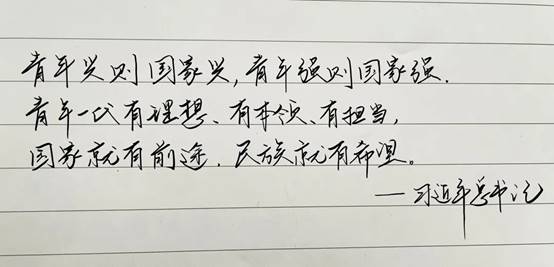 青年兴则国家兴,青年强则国家强.
青年一代有理想、有本领、有担当,
国家就有前途.民族就有希望。
——习近平总书记